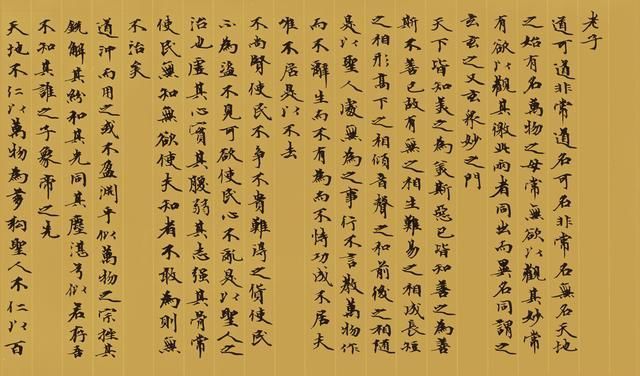 老子
道可道非常道名可名非常名無名天地
之始有名萬物之母常無欲以觀其妙常
有欲以觀其徼此兩者同出而異名同謂之
玄玄之又玄眾妙之門
天下皆知美之為美斯惡已皆知善之為善
斯不善已故有無之相生難易之相成長短
之相形高下之相傾音聲之和前後之相隨
是以聖人處無為之事行不言教萬物作
而不辭生而不有為而不恃功成不居夫
唯不居是以不去
不尚賢使民不爭不貴難得之貨使民
不為盜不見可欲使民心不亂是以聖人之
治也虛其心實其腹弱其志強其骨常
使民無知無欲使夫知者不敢為則無
不治矣
道沖而用之或不盈淵乎似萬物之宗挫其
銳解其紛和其光同其塵湛兮似若存吾
不知其誰之子象帝之先
天地不仁以萬物為芻狗聖人不仁以百